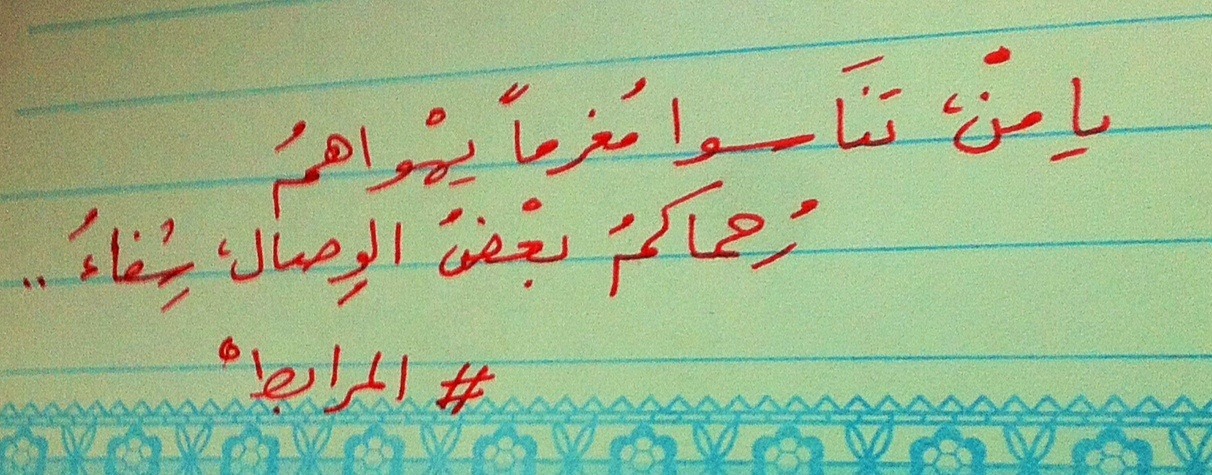 يا منْ، تنَاسوا مُغرماً يهْواهمُ
رُحماكمُ بعْضُ الوِصال، شِفاءُ ..
# المرابط